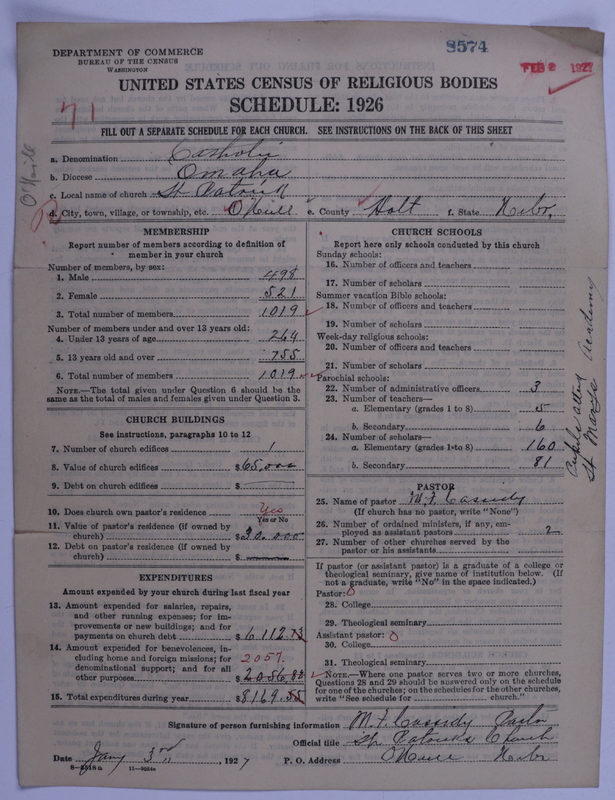 8574
DEPARTMENT OF COMMERCE
BUREAU OF THE CENSUS
WASHINGTON
FEB 2 1927
UNITED STATES CENSUS OF RELIGIOUS BODIES
SCHEDULE: 1926
71
FILL OUT A SEPARATE SCHEDULE FOR EACH CHURCH. SEE INSTRUCTIONS ON THE BACK OF THIS SHEET
a. Denomination Catholic
b. Diocese Omaha
c. Local name of church St Patrick
d. City, town, village, or township, etc. O'Neill e. County Holt f. State Nebr.
O'Neill
MEMBERSHIP
Report number of members according to definition of
member in your church
Number of members, by sex:
1. Male 498
2. Female 521
3. Total number of members 1019
Number of members under and over 13 years old:
4. Under 13 years of age 264
5. 13 years old and over 755
6. Total number of members 1019
NOTE.—The total given under Question 6 should be
same as the total of males and females given under Question 3.
CHURCH BUILDINGS
See instructions, paragraphs 10 to 12
7. Number of church edifices 1
8. Value of church edifices $65,000
9. Debt on church edifices $
10. Does church own pastor's residence? Yes
Yes or No
11. Value of pastor's residence (if owned by
church) $30,000
12. Debt on pastor's residence (if owned by
church) $
EXPENDITURES
Amount expended by your church during last fiscal year
13. Amount expended for salaries, repairs,
and other running expenses; for im-
provements or new buildings; and for
payments on church debt $6,112.73
14. Amount expended for benevolences, in-
cluding home and foreign missions; for
denominational support; and for all
other purposes $2056.82
2057.
15. Total expenditures during year $8169.55
CHURCH SCHOOLS
Report here only schools conducted by this church
Sunday schools:
16. Number of officers and teachers
17. Number of scholars
Summer vacation Bible schools:
18. Number of officers and teachers
19. Number of scholars
Week-day religious schools:
20. Number of officers and teachers
21. Number of scholars
Parochial schools:
22. Number of administrative officers 3
23. Number of teachers—
a. Elementary (grades 1 to 8) 5
b. Secondary 6
24. Number of scholars—
a. Elementary (grades 1 to 8) 160
b. Secondary 81
attend
St Marys Academy
PASTOR
25. Name of pastor M. F. Cassidy
(If church has no pastor, write "None")
26. Number of ordained ministers, if any, em-
ployed as assistant pastors 2
27. Number of other churches served by the
pastor or his assistants
If pastor (or assistant pastor) is a graduate of a college or
theological seminary, give name of institution below. (If
not a graduate, write "No" in the space indicated.)
Pastor: 0
28. College
29. Theological seminary
Assistant pastor: 0
30. College
31. Theological seminary
NOTE.—Where one pastor serves two or more churches,
Questions 28 and 29 should be answered only on the schedule
for one of the churches; on the schedules for the other churches,
write "See schedule for church."
Signature of person furnishing information M. F. Cassidy Pastor
Official title St Patricks Church
Date Jany 3rd, 1927 P. O. Address O'Neill Nebr
11—9264a